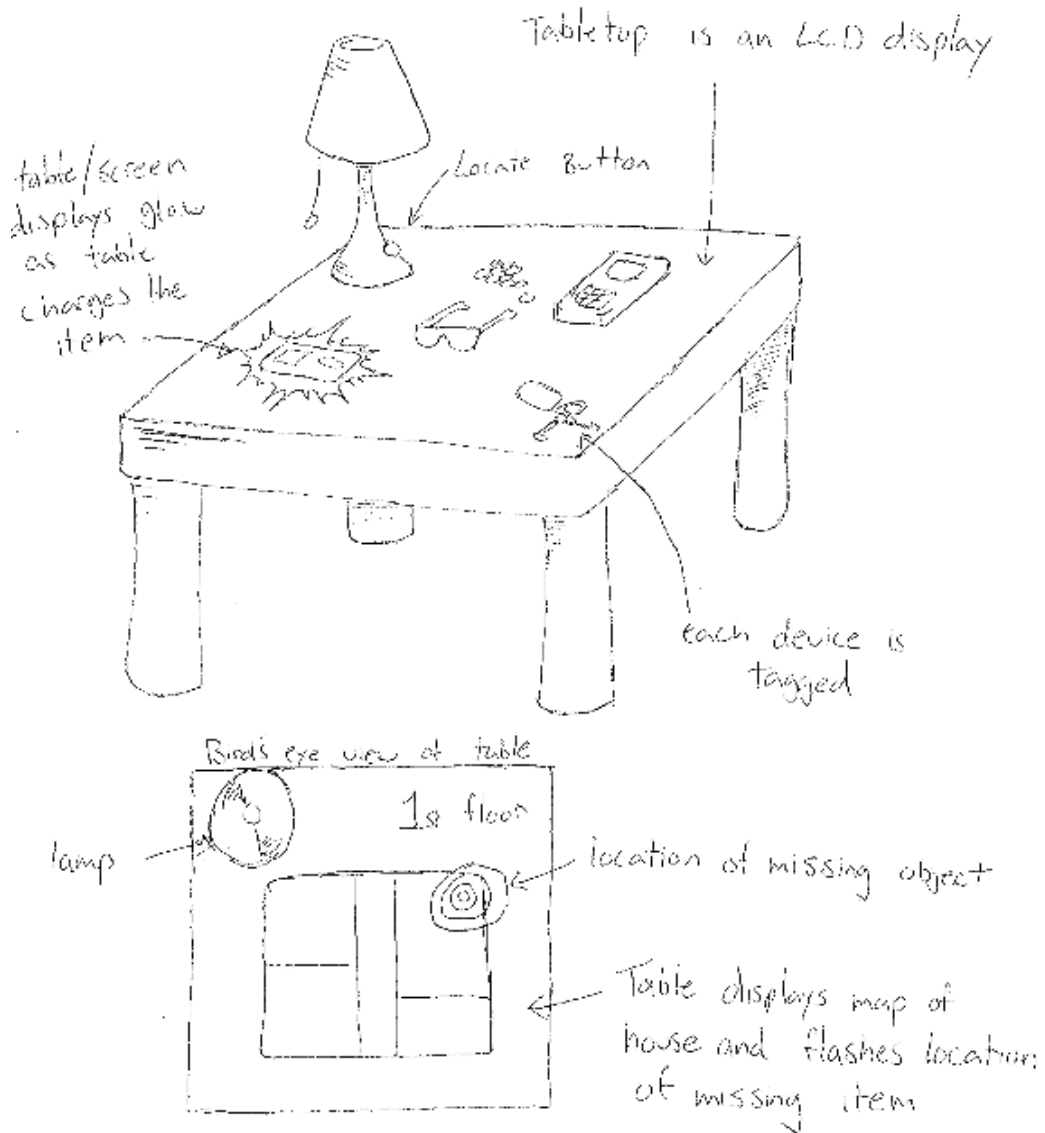 Tabletop is an LCD display
table/screen
displays glow
as table
charges the
item
Locate Button
each device is
tagged
Bird's eye view of table
1st floor
lamp
location of missing object
Table displays map of
house and flashes location
of missing item